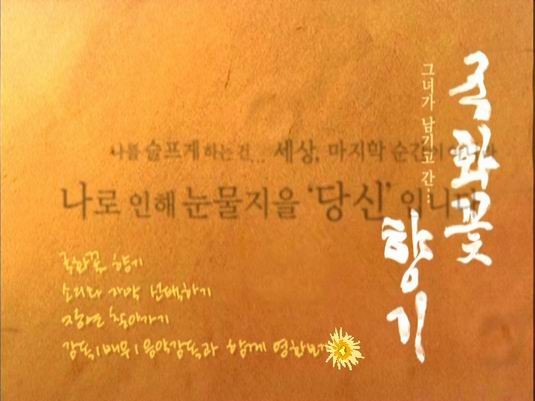 그녀가 남기고 간...
국화꽃
향기
나를 슬프게 하는 건... 세상, 마지막 순간이 아니라
나로 인해 눈물지을 '당신' 입니다
국화꽃 향기
소리와 자막 선택하기
장면 찾아가기
감독/배우/음악감독과 함께 영화보기